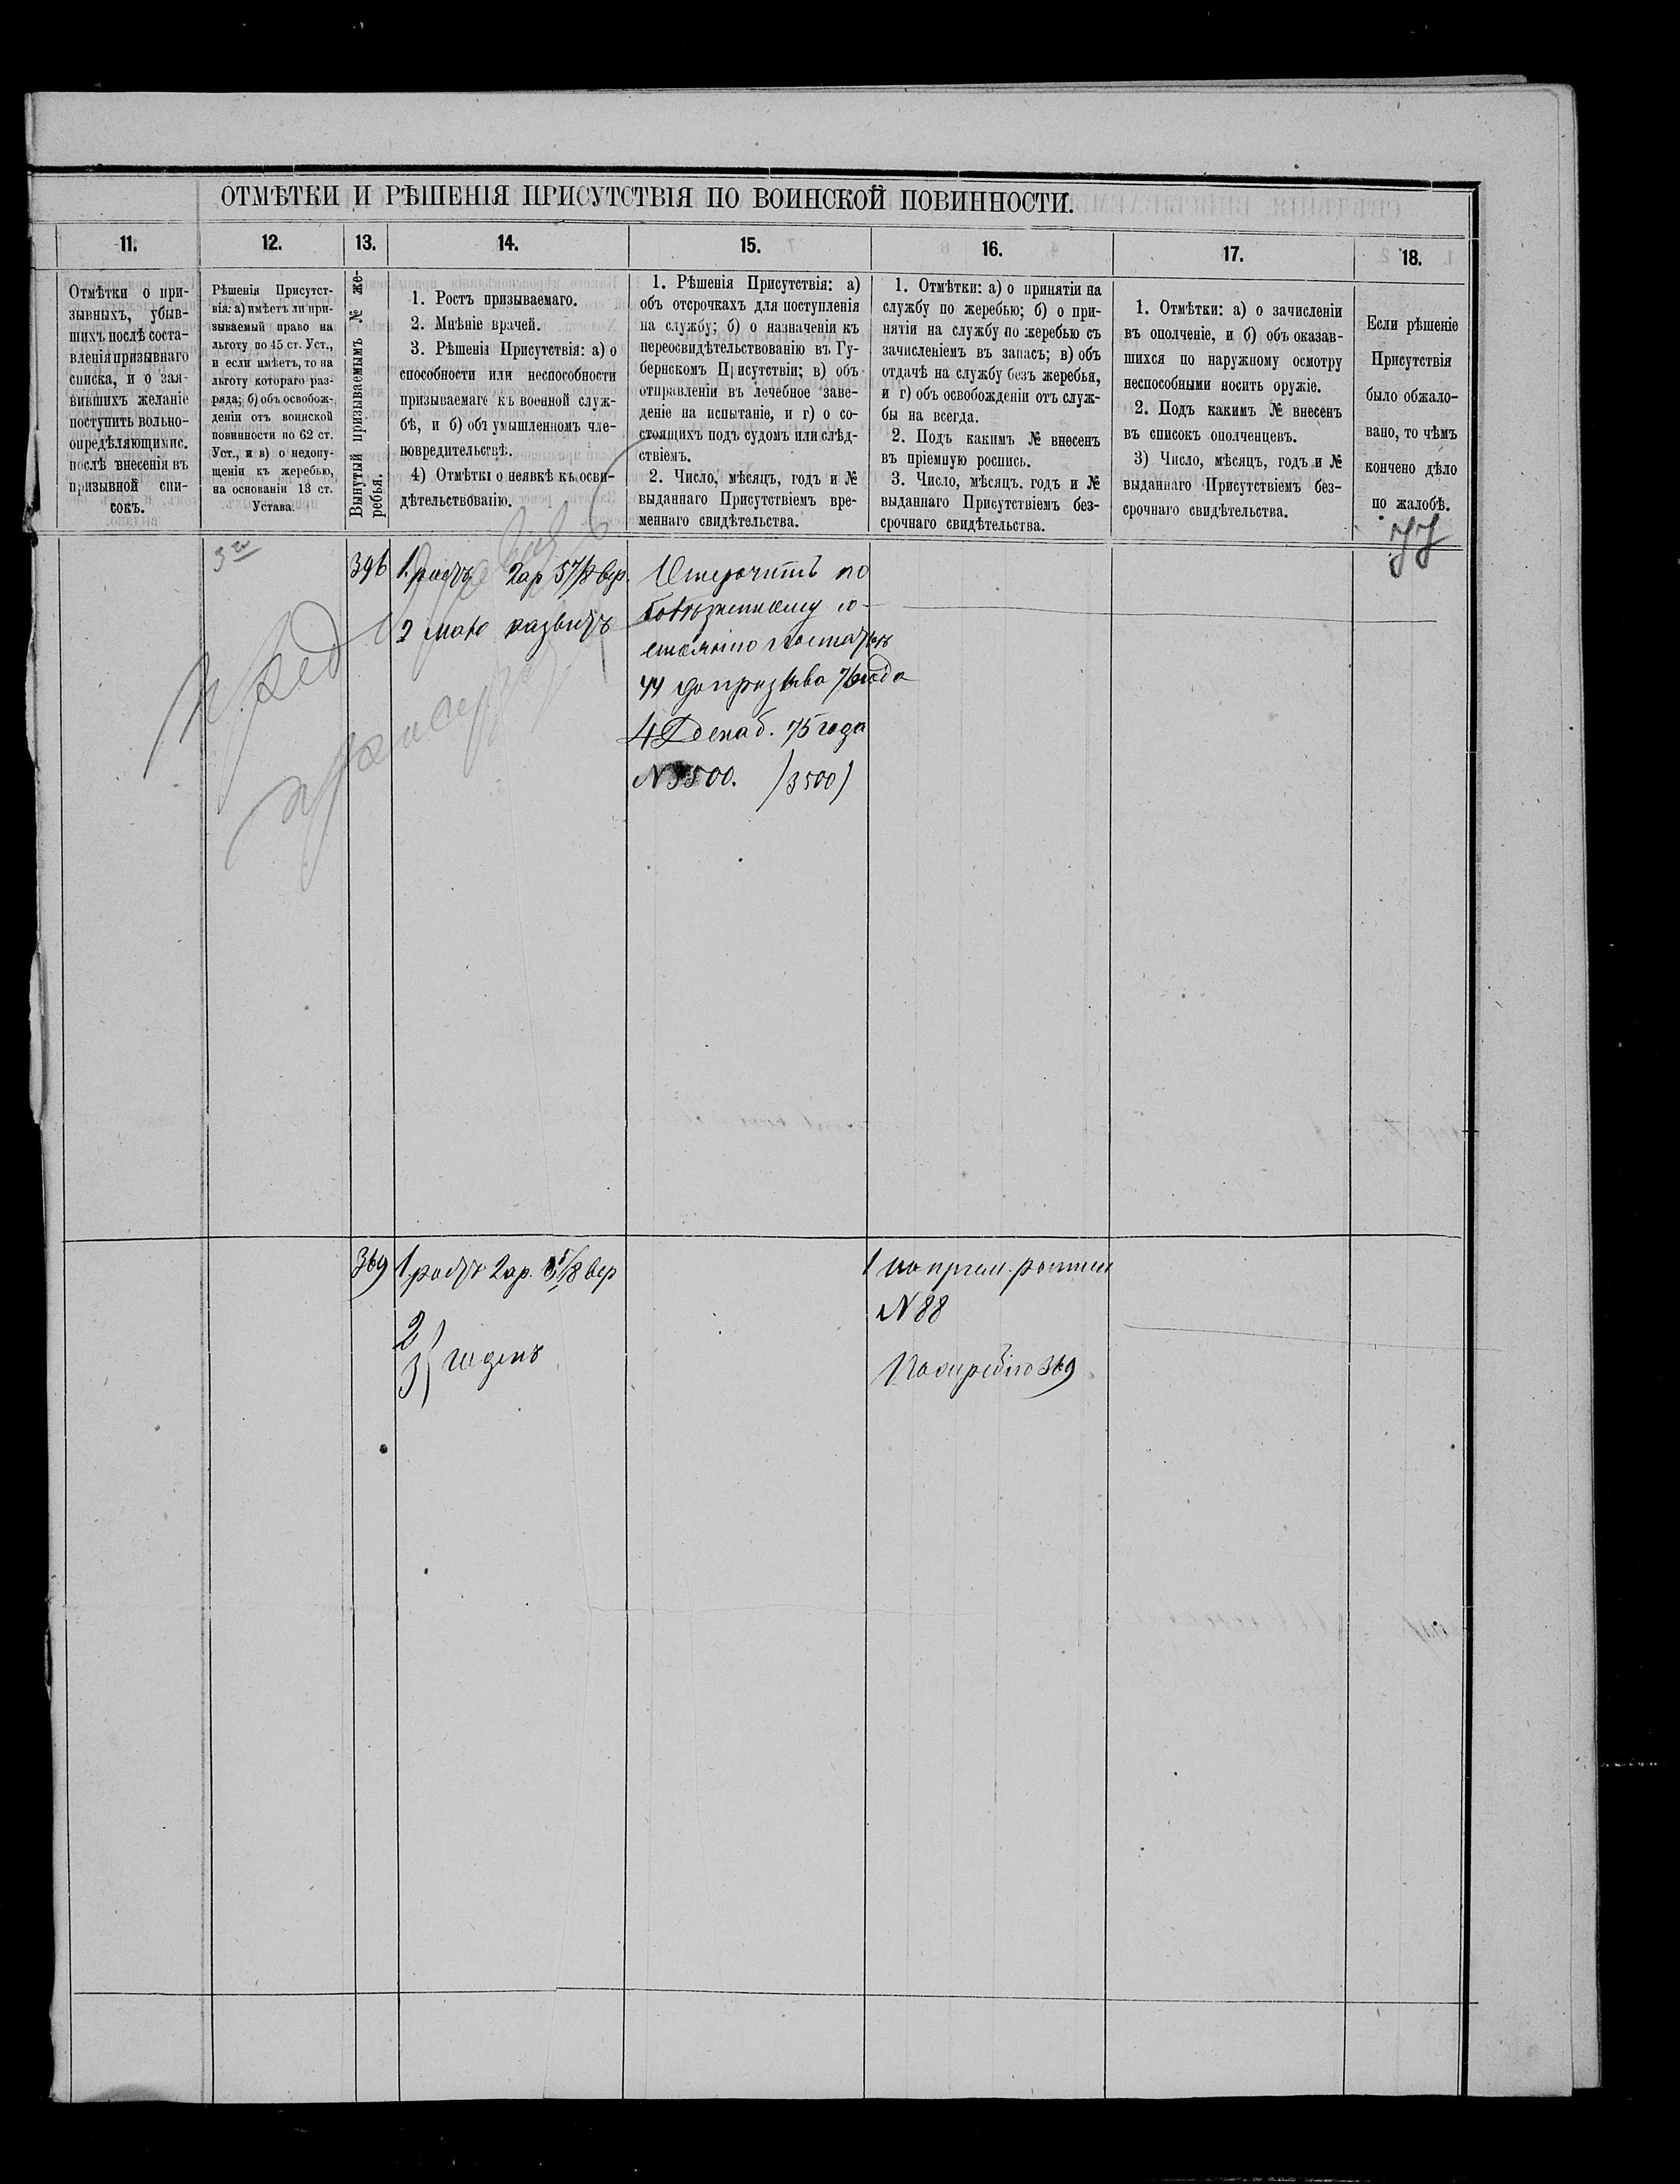 ОТМѢТКИ И РѢШЕНІЯ ПРИСУТСТВІЯ ПО ВОИНСКОЙ ПОВИННОСТИ.
11.
Отмѣтки о при-
зывныхъ, убыв-
шихъ послѣ соста-
вленія призывнаго
списка, и о зая-
вившихъ желаніе
поступить вольно-
опредѣляющимис.
послѣ внесенія въ
призывной спи-
сокъ.
12.
Рѣшенія Присутст-
вія: а) имѣетъ ли при-
зываемый право на
льготу по 45 ст. Уст.,
и если имѣетъ, то на
льготу котораго раз-
ряда; б) объ освобож-
деніи отъ воинской
повинности по 62 ст.
Уст., и в) о недопу-
щеніи къ жеребью,
на основаніи 13 ст.
Устава.
13.
Вынутый призываемымъ № же-
ребья.
14.
1. Ростъ призываемаго.
2. Мнѣніе врачей.
3. Рѣшенія Присутствія: а) о
способности или неспособности
призываемаго къ военной служ-
бѣ, и б) объ умышленномъ чле-
новредительствѣ.
4) Отмѣтки о неявкѣ къ осви-
дѣтельствованію.
15.
1. Рѣшенія Присутствія: а)
объ отсрочкахъ для поступленія
на службу; б) о назначеніи къ
переосвидѣтельствованію въ Гу-
бернскомъ Присутствіи; в) объ
отправленіи въ лечебное заве-
деніе на испытаніе, и г) о со-
стоящихъ подъ судомъ или слѣд-
ствіемъ.
2. Число, мѣсяцъ, годъ и №
выданнаго Присутствіемъ вре-
меннаго свидѣтельства.
16.
1. Отмѣтки: а) о принятіи на
службу по жеребью; б) о при-
нятіи на службу по жеребью съ
зачисленіемъ въ запасъ; в) объ
отдачѣ на службу безъ жеребья,
и г) объ освобожденіи отъ служ-
бы на всегда.
2. Подъ какимъ № внесенъ
въ пріемную роспись.
3. Число, мѣсяцъ. годъ и №
выданнаго Присутствіемъ без-
срочнаго свидѣтельства.
17.
1. Отмѣтки: а) о зачисленіи
въ ополченіе, и б) объ оказав-
шихся по наружному осмотру
неспособными носить оружіе.
2. Подъ какимъ № внесенъ
въ списокъ ополченцевъ.
3) Число, мѣсяцъ, годъ и №
выданнаго Присутствіемъ без-
срочнаго свидѣтельства.
18.
Если рѣшеніе
Присутствія
было обжало-
вано, то чѣмъ
кончено дѣло
по жалобѣ.
77
396
1. ростъ 2 ар 5 7/8 вер.
2 мало развитъ
Отсрочить по
болѣзненному со-
стоянію
44 до призыва 76 года
4 Декаб. 75 года
N 3500. (3500)
369
1. ростъ 2 ар. вер
2
3
годенъ
1 по пріем. росписи
N 88
По жеребію 369